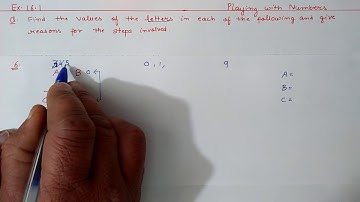 Ex:16.1 Playing with Numbers
Q: Find the values of the letters in each of the following and give
reasons for the steps involved.
0, 1, 9
B A=
B=
C C=